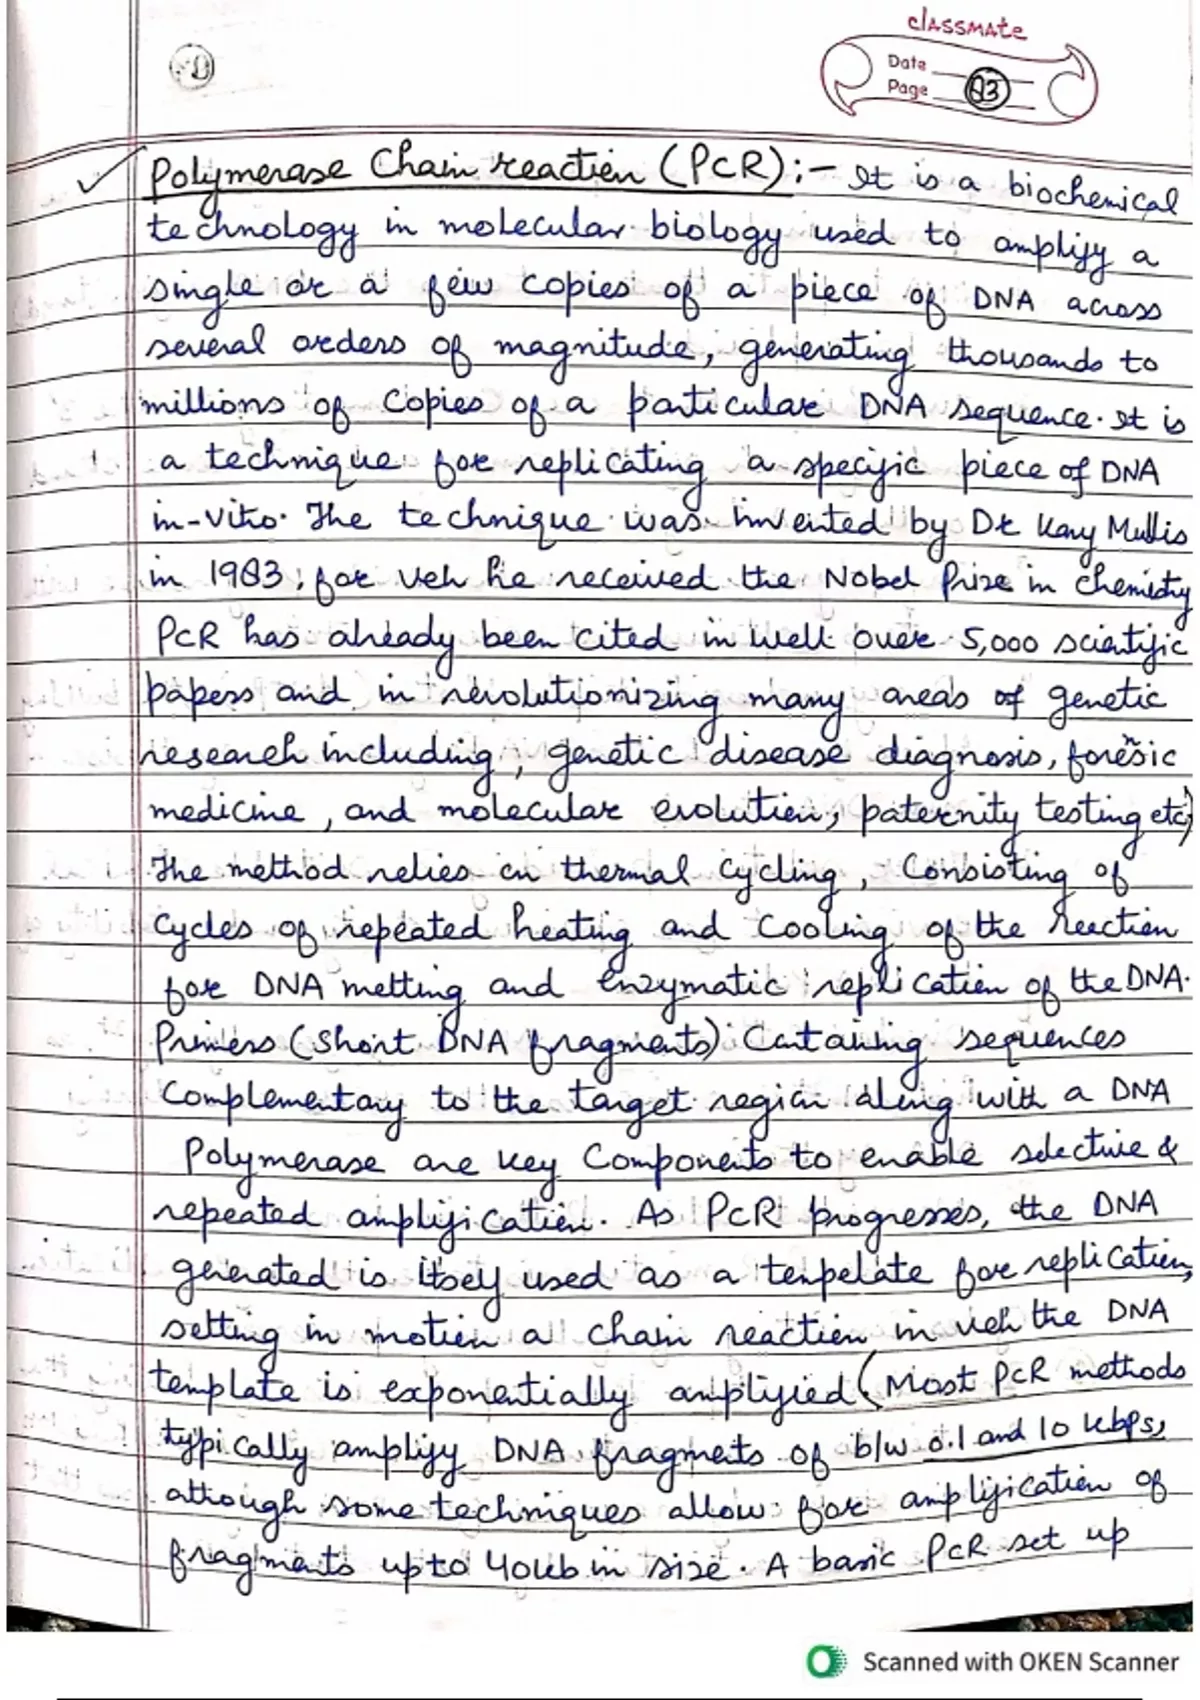 classmate
Date
Page 83
Polymerase Chain reaction (PCR):- It is a biochemical
technology in molecular biology used to amplify a
single or a few copies of a piece of DNA across
several orders of magnitude, generating thousands to
millions of copies of a particular DNA sequence. It is
a technique for replicating a specific piece of DNA
in-vitro. The technique was invented by Dr Kary Mullis
in 1983, for wch he received the Nobel Prize in chemistry
PCR has already been cited in well over 5,000 scientific
papers and in revolutionizing many areas of genetic
research including, genetic disease diagnosis, forensic
medicine, and molecular evolution, paternity testing etc,
The method relies on thermal cycling, Consisting of
Cycles of repeated heating and Cooling of the reection
for DNA metting and enzymatic replication of the DNA.
Primers (Short DNA fragments) Containing sequences
Complementary to the target region along with a DNA
Polymerase are key Components to enable selective &
repeated amplification. As PCR progresses, the DNA
generated is itself used as a tenpelate for replication,
setting in motion a chain reaction in wch the DNA
template is exponentially amplified (Most PCR methods
typically amplify DNA fragmets of b/w 0.1 and 10 kbps,
athough some techniques allow for amplification of
fragments upto 40kb in size. A basic PCR set up
Scanned with OKEN Scanner